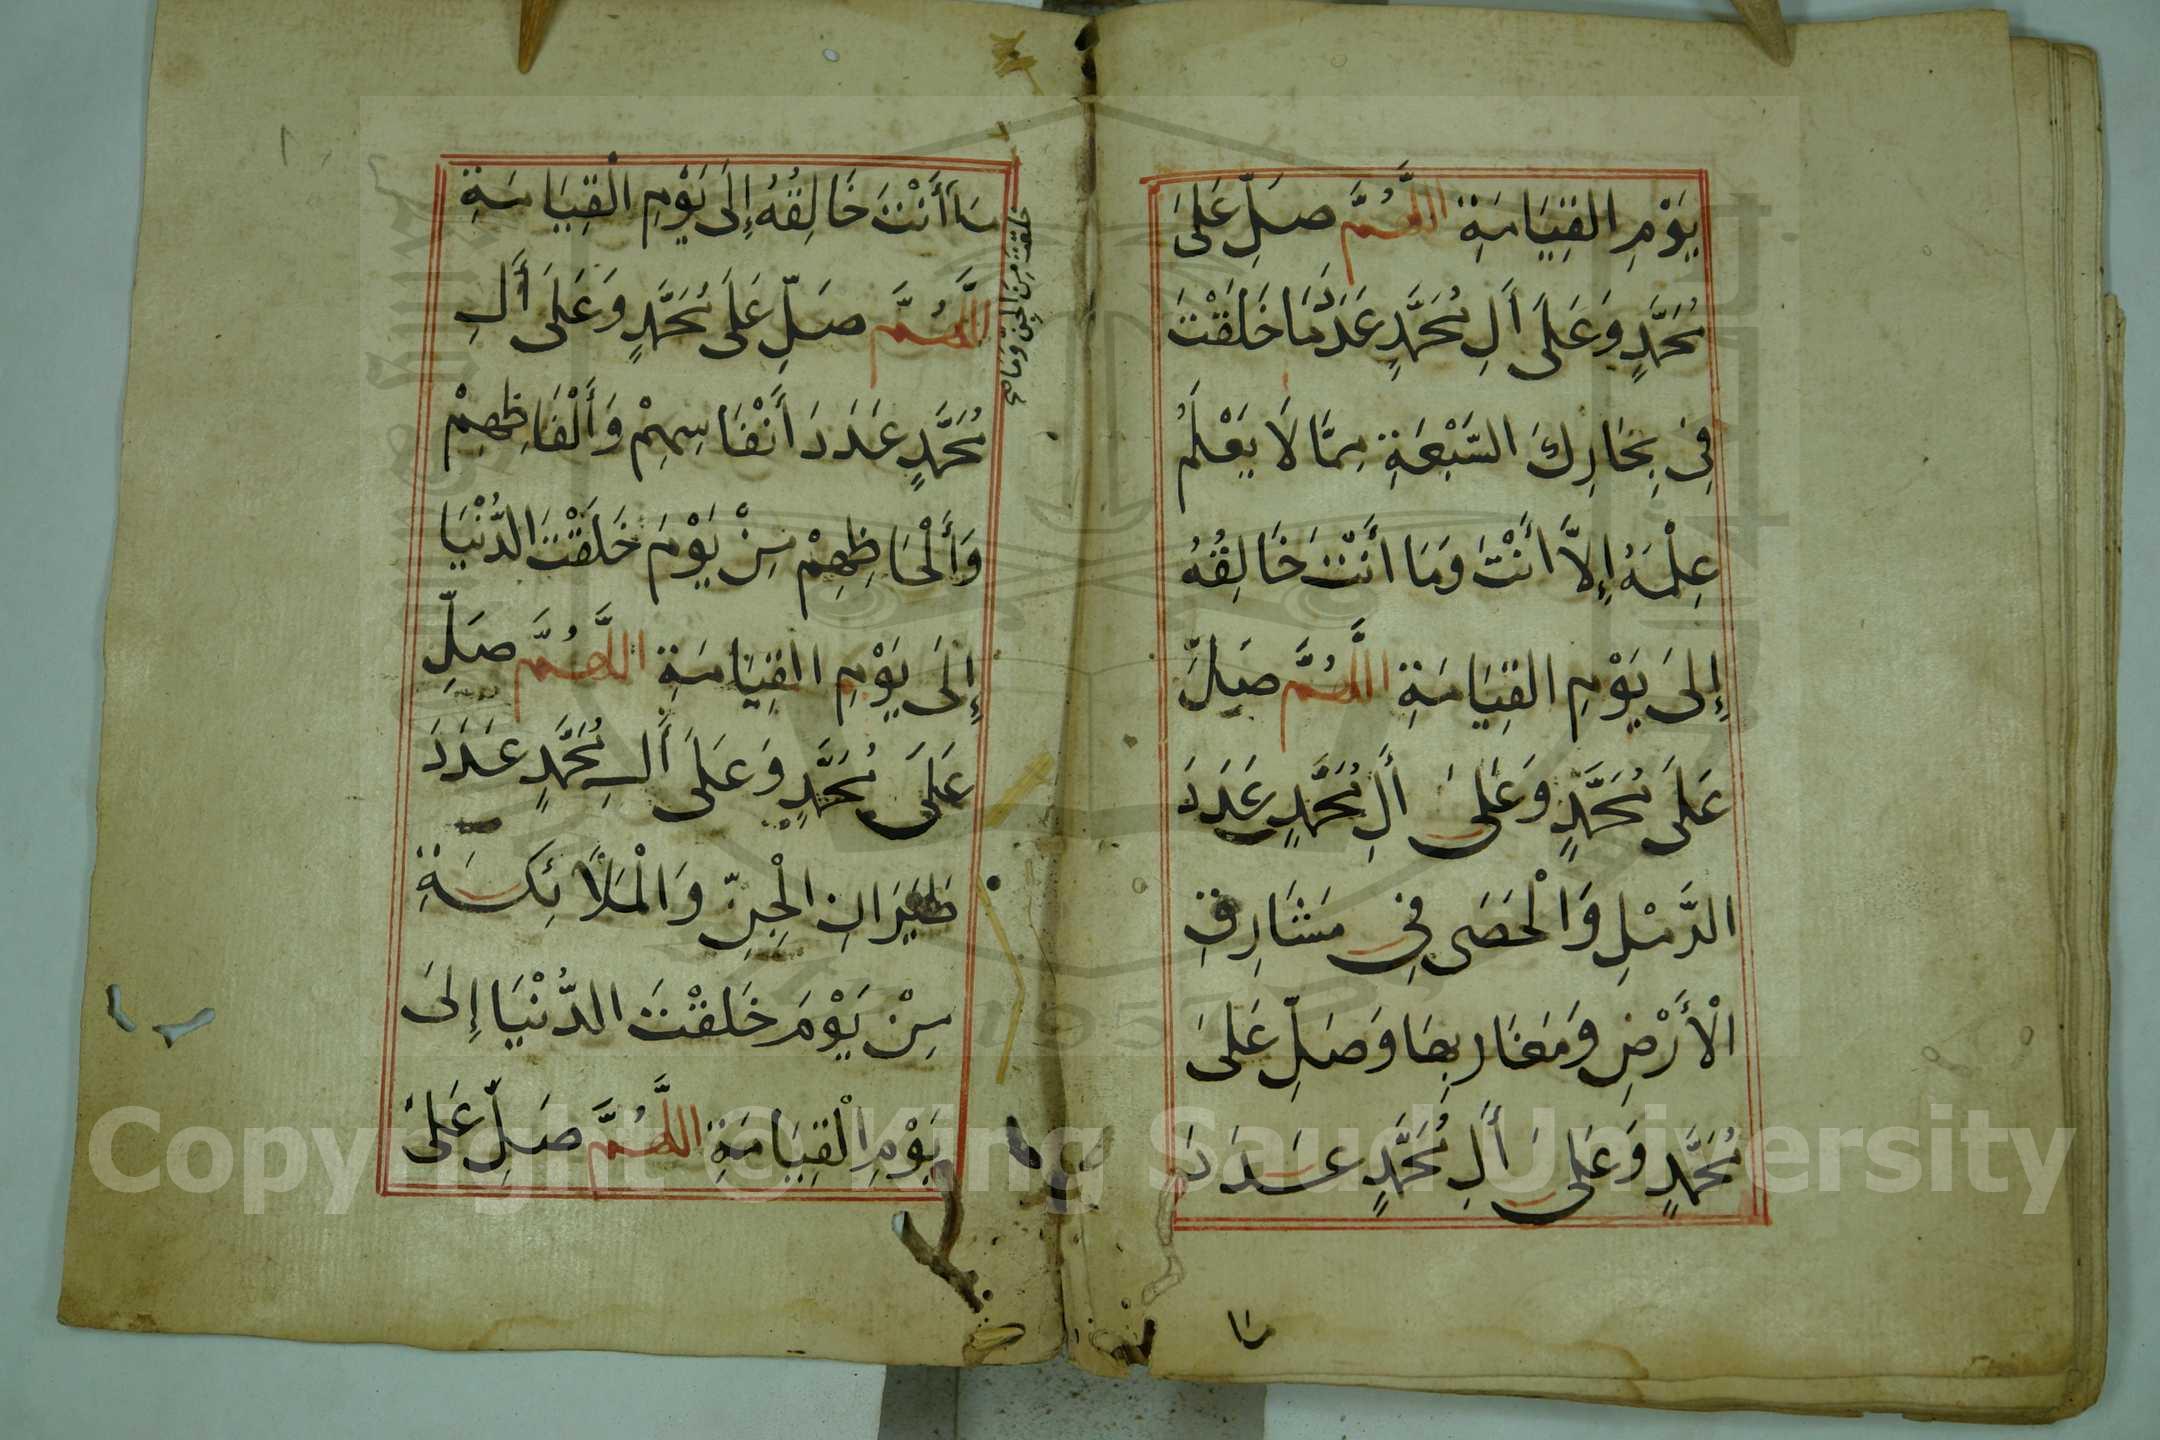 يَوْمِ الْقِيَامَةِ اللَّهُمَّ صَلِّ عَلَى
مُحَمَّدٍ وَعَلَى أَلِ مُحَمَّدٍ عَدَدَ مَا خَلَقْتَ
فِى بِحَارِكَ السَّبْعَةِ مِمَّا لَا يَعْلَمُ
عِلْمَهُ إِلَّا أَنْتَ وَمَا أَنْتَ خَالِقُهُ
إِلَى يَوْمِ القِيَامَةِ اللَّهُمَّ صَلِّ
عَلَى مُحَمَّدٍ وَعَلَى أَلِ مُحَمَّدٍ عَدَدَ
الرَّمْلِ وَالْحَصَى فِي مَشَارِقِ
الْأَرْضِ وَمَغَارِبِهَا وَصَلِّ عَلَى
مُحَمَّدٍ وَعَلَى أَلِ مُحَمَّدٍ عَدَدَ
مَا
مَا أَنْتَ خَالِقُهُ إِلَى يَوْمِ الْقِيَامَةِ
اللَّهُمَّ صَلِّ عَلَى مُحَمَّدٍ وَعَلَى أَلِ
مُحَمَّدٍ عَدَدَ أَنْفَاسِهِمْ وَأَلْفَاظِهِمْ
وَأَلْحَاظِهِمْ مِنْ يَوْمَ خَلَقْتَ الدُّنْيَا
إِلَى يَوْمِ القِيَامَةِ اللَّهُمَّ صَلِّ
عَلَى مُحَمَّدٍ وَعَلَى أَلِ مُحَمَّدٍ عَدَدَ
طَيَرَانِ الْجِنِّ وَالْمَلَائِكَةِ
مِنْ يَوْمَ خَلَقْتَ الدُّنْيَا إِلَى
يَوْمِ الْقِيَامَةِ اللَّهُمَّ صَلِّ عَلَى
خلقت من الجن وما
Copyright © King Saud University
1957